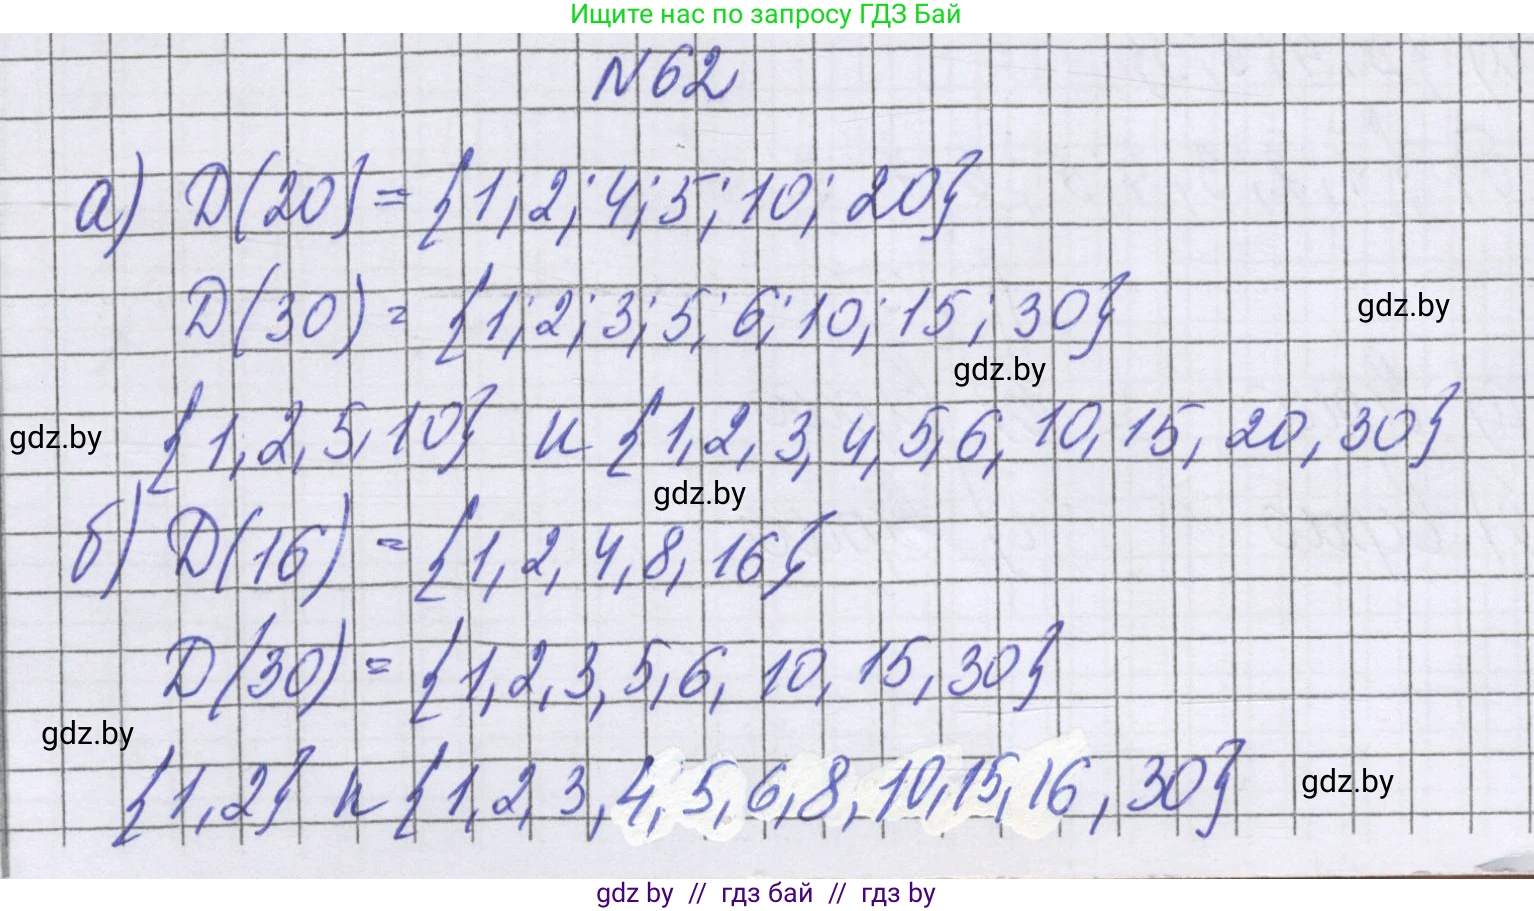 Ищите нас по запросу ГДЗ Бай
N62
а) D(20) = {1; 2; 4; 5; 10; 20}
D(30) = {1; 2; 3; 5; 6; 10; 15; 30}
gdz.by
gdz.by
gdz.by
{1, 2, 5, 10} и {1, 2, 3, 4, 5, 6, 10, 15, 20, 30}
gdz.by
б) D(16) = {1, 2, 4, 8, 16}
D(30) = {1, 2, 3, 5, 6, 10, 15, 30}
gdz.by
{1, 2} и {1, 2, 3, 4, 5, 6, 8, 10, 15, 16, 30}
gdz.by
gdz by // гдз бай // гдз by